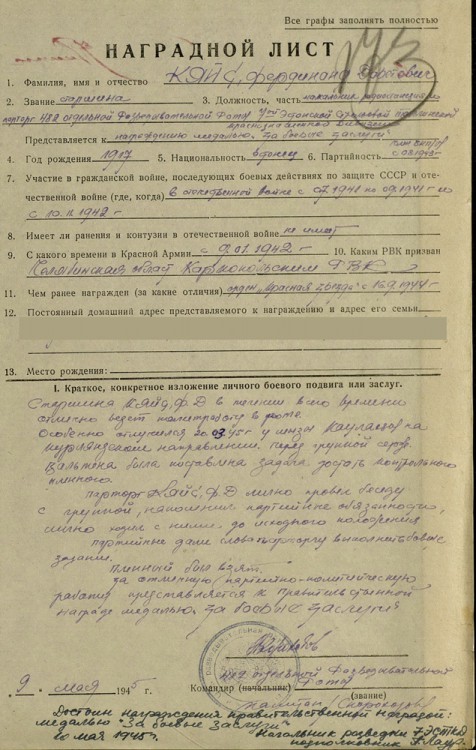 Все графы заполнять полностью
НАГРАДНОЙ ЛИСТ
1. Фамилия, имя и отчество КЯЙС, Фердинанд
2. Звание старшина 3. Должность, часть начальник радиостанции
парторг 488 отдельной Разведывательной Роты 7ой Эстонской Таллинской
краснознаменной дивизии
Представляется к награждению медалью „За боевые заслуги“
4. Год рождения 1917 5. Национальность эстонец 6. Партийность член ВКП/б/
7. Участие в гражданской войне, последующих боевых действиях по защите СССР и оте-
чественной войне (где, когда) в отечественной войне с 07.1941 по 09.1941 г и
с 10.11.1942 г
8. Имеет ли ранения и контузии в отечественной войне не имеет
9. С какого времени в Красной Армии с 9.01.1942 г 10. Каким РВК призван
Челябинская область РВК
11. Чем ранее награжден (за какие отличия) орден „Красная Звезда“ с 1944 г
12. Постоянный домашний адрес представляемого к награждению и адрес его семьи
13. Место рождения:
I. Краткое, конкретное изложение личного боевого подвига или заслуг.
Старшина КЯЙС, Ф.Д в течении всего времени
отлично ведет политработу в роте.
Особенно отличился 20.03.45 г у мызы на
курляндском направлении. Перед группой серж.
Вальтена была поставлена задача достать контрольного
пленного.
парторг Кяйс, Ф.Д лично провел беседу
с группой, напомнил партийные обязанности,
лично ходил с ними до исходного положения
партийные дали слово парторгу выполнить боевое
задание.
Пленный был взят.
За отличную партийно-политическую
работу представляется к правительственной
награде медалью „За боевые заслуги“
К-р отдельной Разведывательной
Роты
9 мая 1945 г. Командир (начальник)
(звание)
капитан
Достоин награждения правительственной наградой:
медалью "За боевые заслуги"
10 мая 1945 г. Начальник разведки 7 ЭСТКД
подполковник